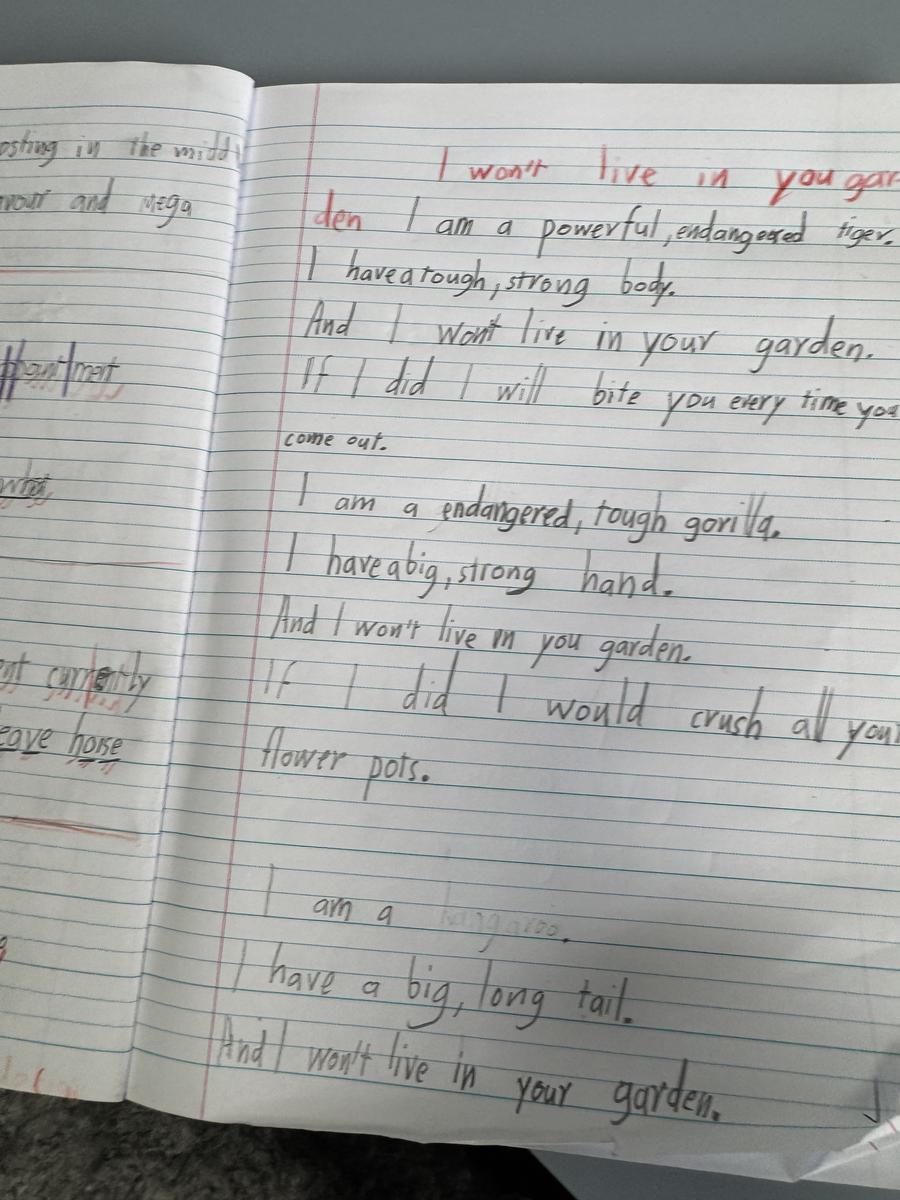 osting in the midd
vour and mega
what
currently
eave horse
I won't live in you gar
den I am a powerful, endangered tiger.
I have a tough, strong body.
And I won't live in your garden.
If I did I will bite you every time you
come out.
I am a endangered, tough gorilla.
I have a big, strong hand.
And I won't live in you garden.
If I did I would crush all your
flower pots.
I am a kangaroo.
I have a big, long tail.
And I won't live in your garden.